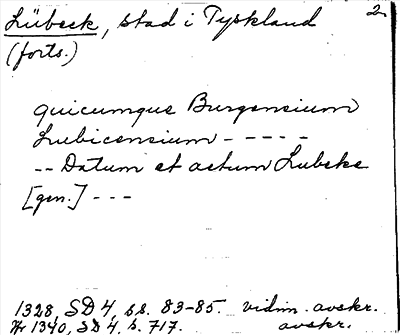 Lübeck, stad i Tyskland 2.
(forts.)
quicumque Burgensium
Lubicensium - - - - -
-- Datum et actum Lubeke
[gen.] - - -
1328, SD 4, ss. 83-85. vidim. avskr.
Nr 1340, SD 4, s. 717. avskr.